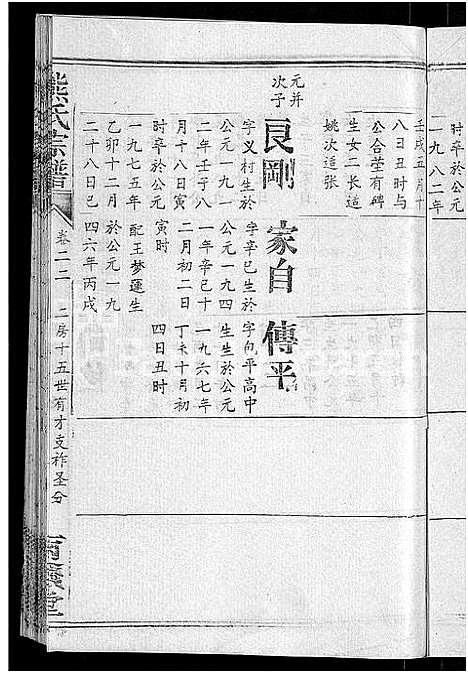 一九八二年
壬戌五月十
八日丑时与
公合茔有碑
生女二长适
姚次适张
元并
次子
良剛
字义村生於
公元一九一
二年壬子八
月十八日寅
时卒於公元
一九七五年
乙卯十二月
二十八日巳
家自
字辛巳生於
公元一九四
一年辛巳十
二月初二日
寅时
配王梦莲生
於公元一九
四六年丙戌
傳平
字向平高中
生生於公元
一九六七年
丁未十月初
四日丑时
熊氏宗譜
卷二二
二房十五世有才支祚圣分